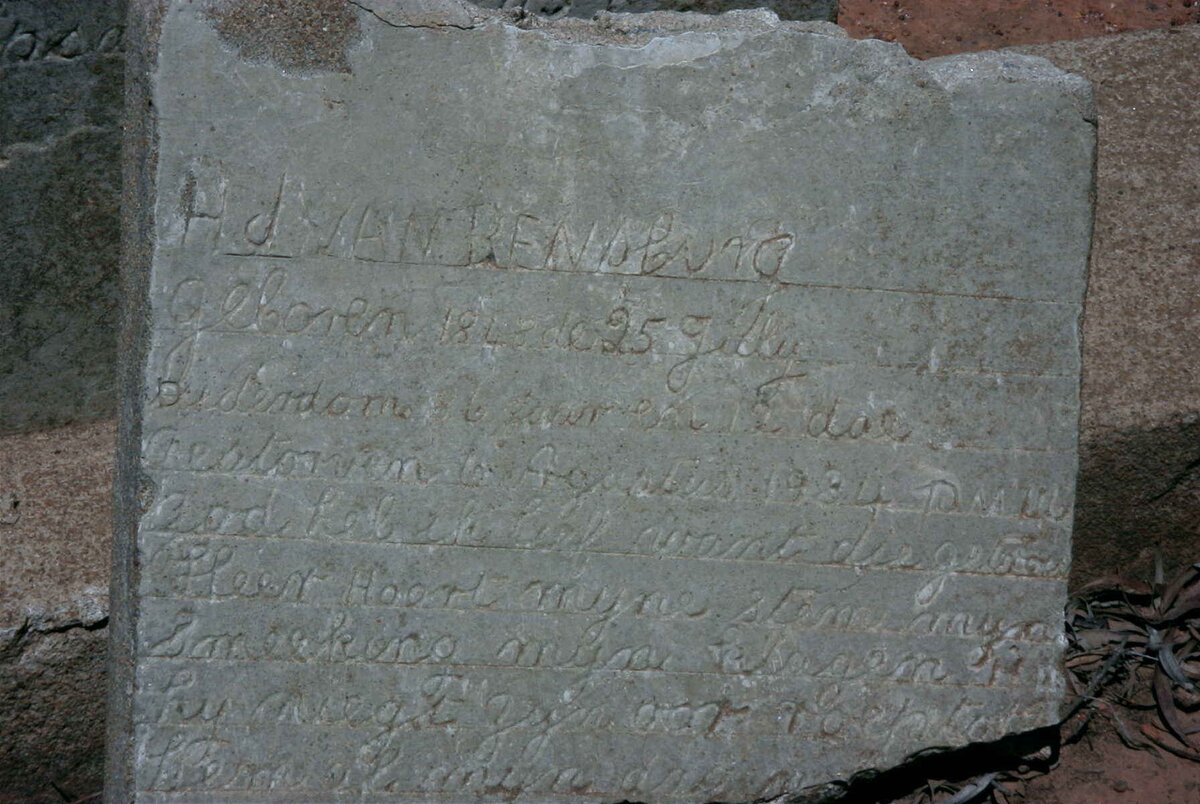 H d J VAN RENSburg
Geboren 1848 de 25 gilly
Ouderdom 86 Jaar en 12 dae
Gestorven 6 Agustus 1934
God heb ik lief want die getrou
Heer Hoort myne stem myn
Smeeking myn klagen
hy neegt zyn oor
hem ik myn